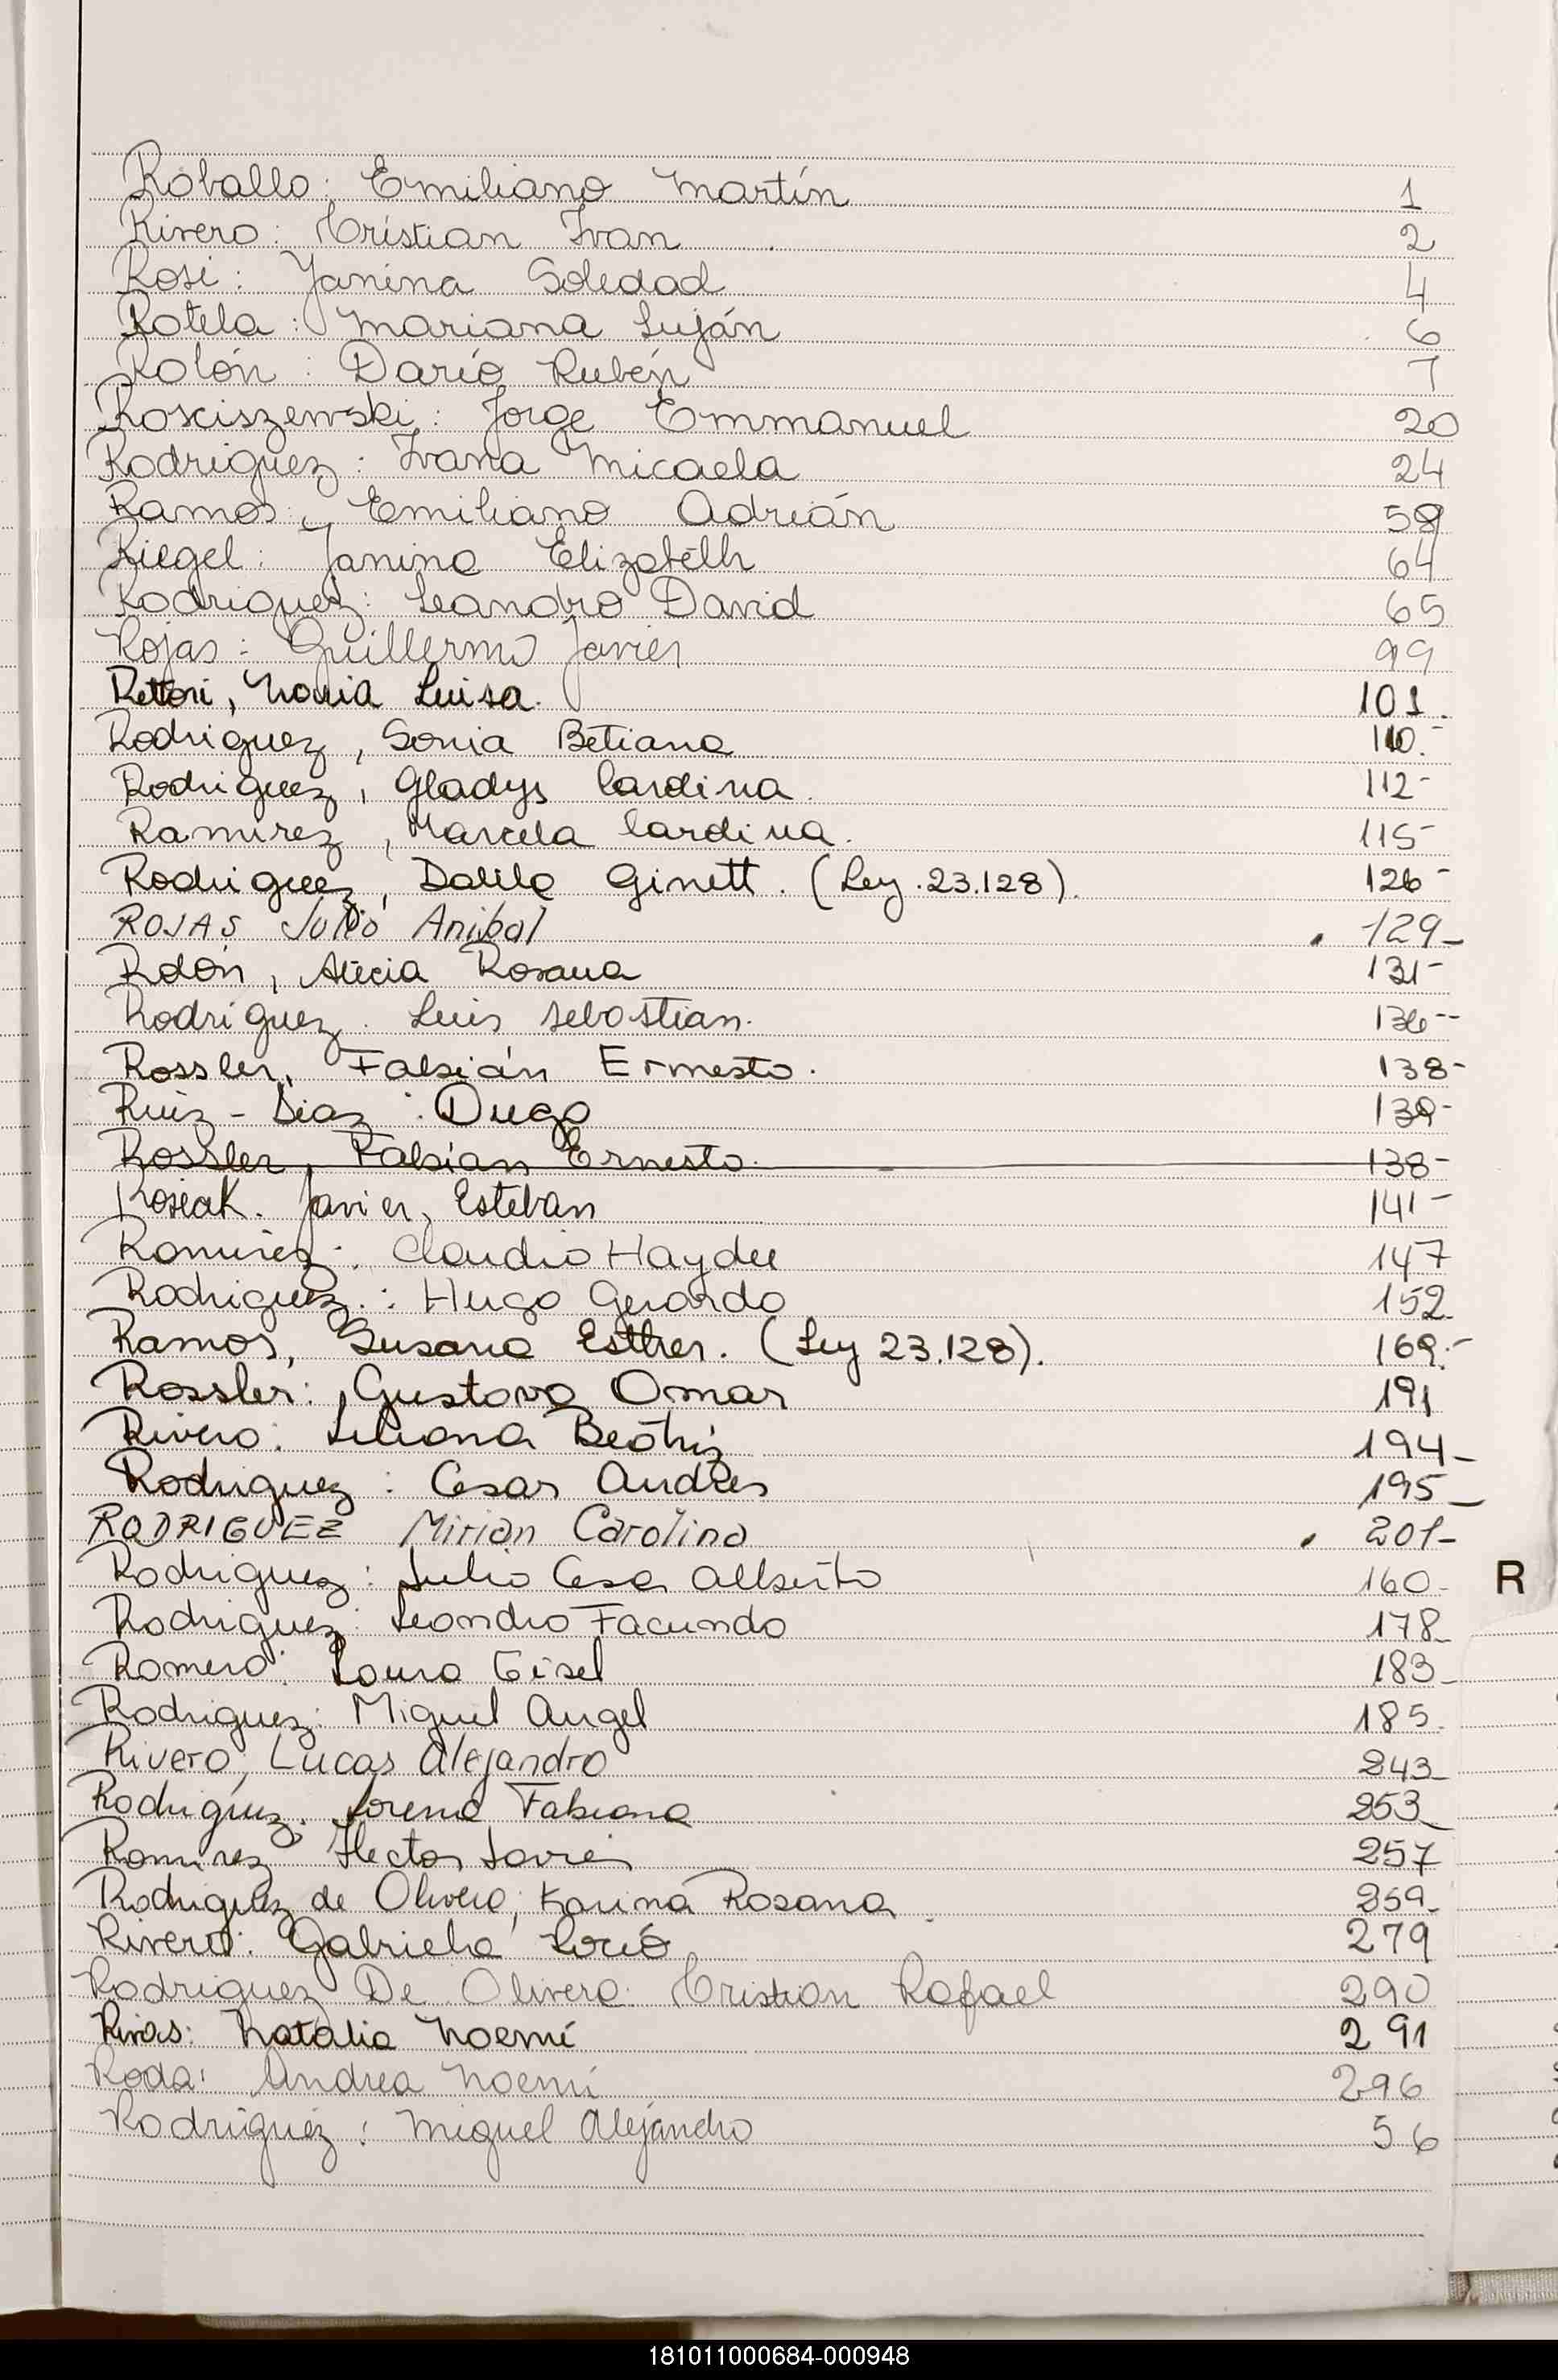 Roballo: Emiliano Martín 1
Rivero: Cristian Ivan 2
Rosi: Yanina Soledad 4
Rotela: Mariana Luján 6
Rolón: Darío Rubén 7
Rosciszewski: Jorge Emmanuel 20
Rodriguez: Ivana Micaela 24
Ramos: Emiliano Adrián 59
Riegel: Yanina Elizabeth 64
Rodriguez: Leandro David 65
Rojas: Guillermo Javier 99
Rettori, Luisa. 101.
Rodriguez, Sonia Betiana 110.-
Rodriguez, Gladys Carolina. 112-
Ramirez, Marcela Carolina. 115-
Rodriguez, Dalila Ginett. (Ley.23.128). 126-
ROJAS Julio Anibal . 129-
Rolón, Alicia Rosana 131-
Rodriguez. Luis Sebastian. 136--
Rossler, Fabián Ernesto. 138-
Ruiz-Diaz: Diego 139-
Rossler, Fabian Ernesto. 138-
Rosciak. Javier, Esteban 141-
Ramirez: Claudio Haydee 147
Rodriguez.: Hugo Gerardo 152
Ramos, Susana Esther. (Ley 23.128). 169.-
Rossler: Gustavo Omar 191
Rivero: Liliana Beatriz 194-
Rodriguez: Cesar Andres 195-
RODRIGUEZ Mirian Carolina . 201-
Rodriguez: Julio Cesar Alberto 160-
Rodriguez: Leandro Facundo 178-
Romero: Laura Gisel 183-
Rodriguez: Miguel Angel 185-
R
Rivero, Lucas Alejandro 243-
Rodriguez: Lorena Fabiana 253-
Ramirez Hector Javier 257
Rodriguez de Olivera, Karina Rosana. 259-
Rivero: Gabriela Rocío 279
Rodriguez De Olivera: Cristian Rafael 290
Rivas: Natalia Noemí 291
Roda: Andrea Noemí 296
Rodriguez: Miguel Alejandro 56
181011000684-000948